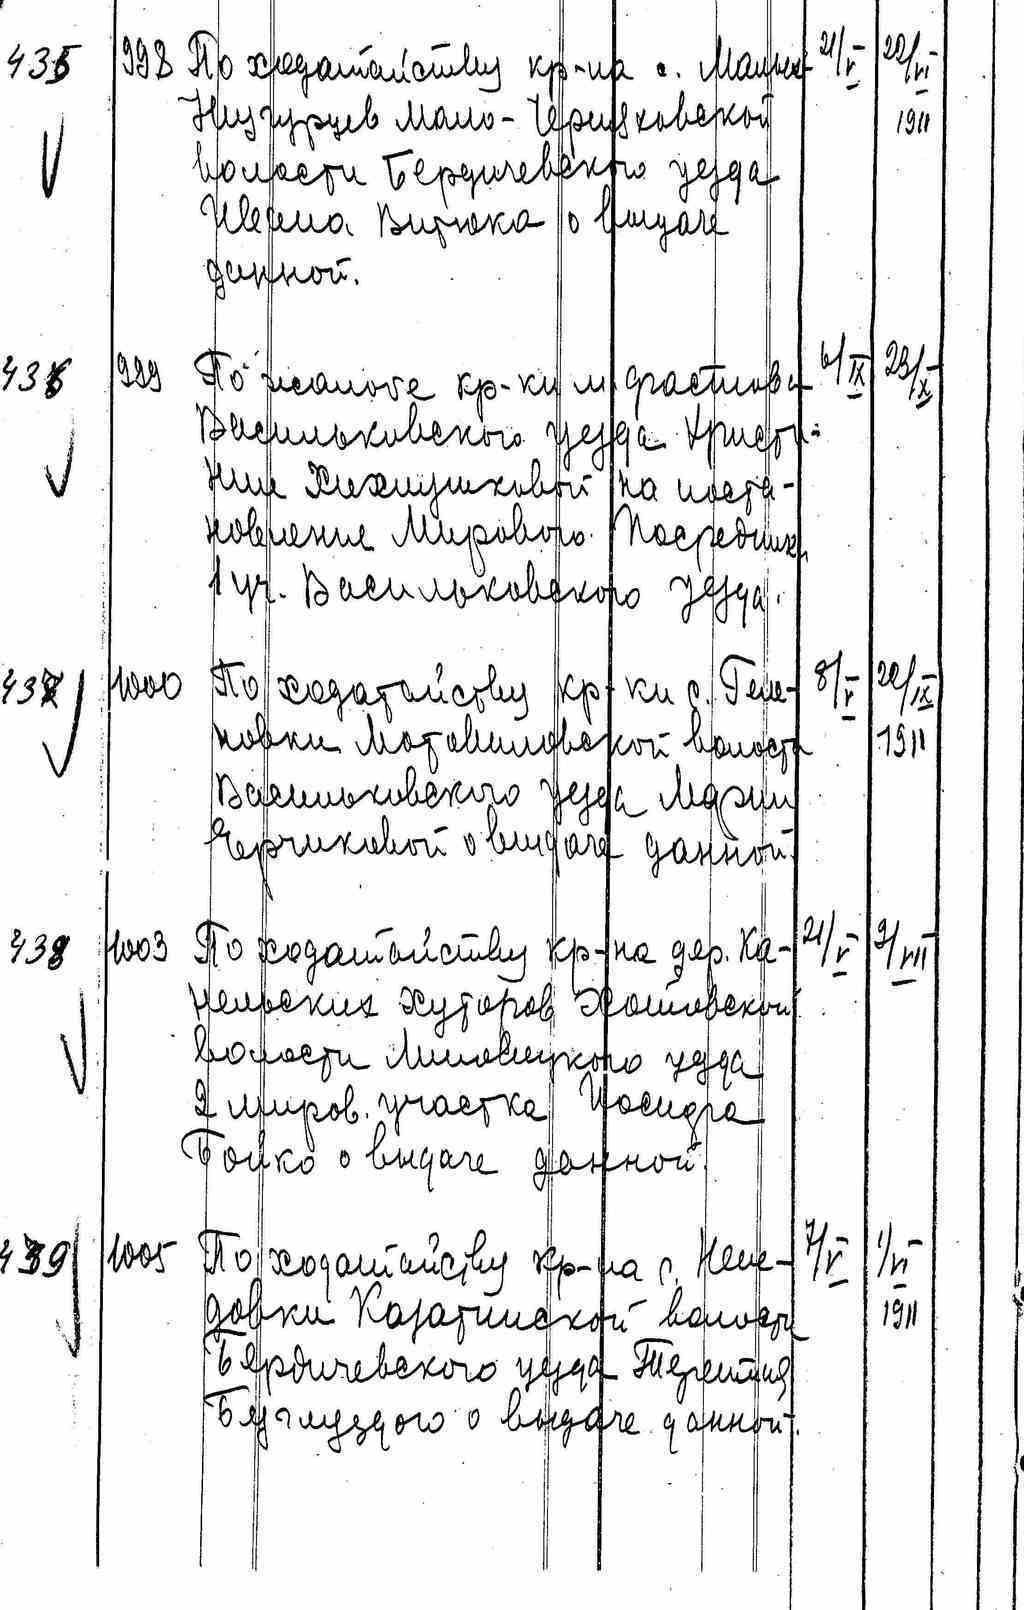 435 998 По ходатайству кр-на с. Малых 21/V 20/VI
Низгурцев Мало-Черняховской 1911
волости Бердичевского уезда
Ивана Витюка о выдаче
данной.
436 999 По жалобе кр-ки м. Фастова 6/IX 23/X
Васильковского уезда Христи-
нии на поста-
новление Мирового Посредника
1 уч. Васильковского уезда.
437 1000 По ходатайству кр-ки с. Геле- 8/V 20/IX
новки Мотовиловской волости 1911
Васильковского уезда Марии
Ерчиковой о выдаче данной.
438 1003 По ходатайству кр-на дер. Ка- 21/V 2/VII
нельских хуторов Хошевской
волости Липовецкого уезда
2 миров. участка Иосидра
Бойко о выдаче данной.
439 1005 По ходатайству кр-на с. Пеле- 7/V 1/VI
довки Казатинской волости 1911
Бердичевского уезда Терентия
Безглуздого о выдаче данной.